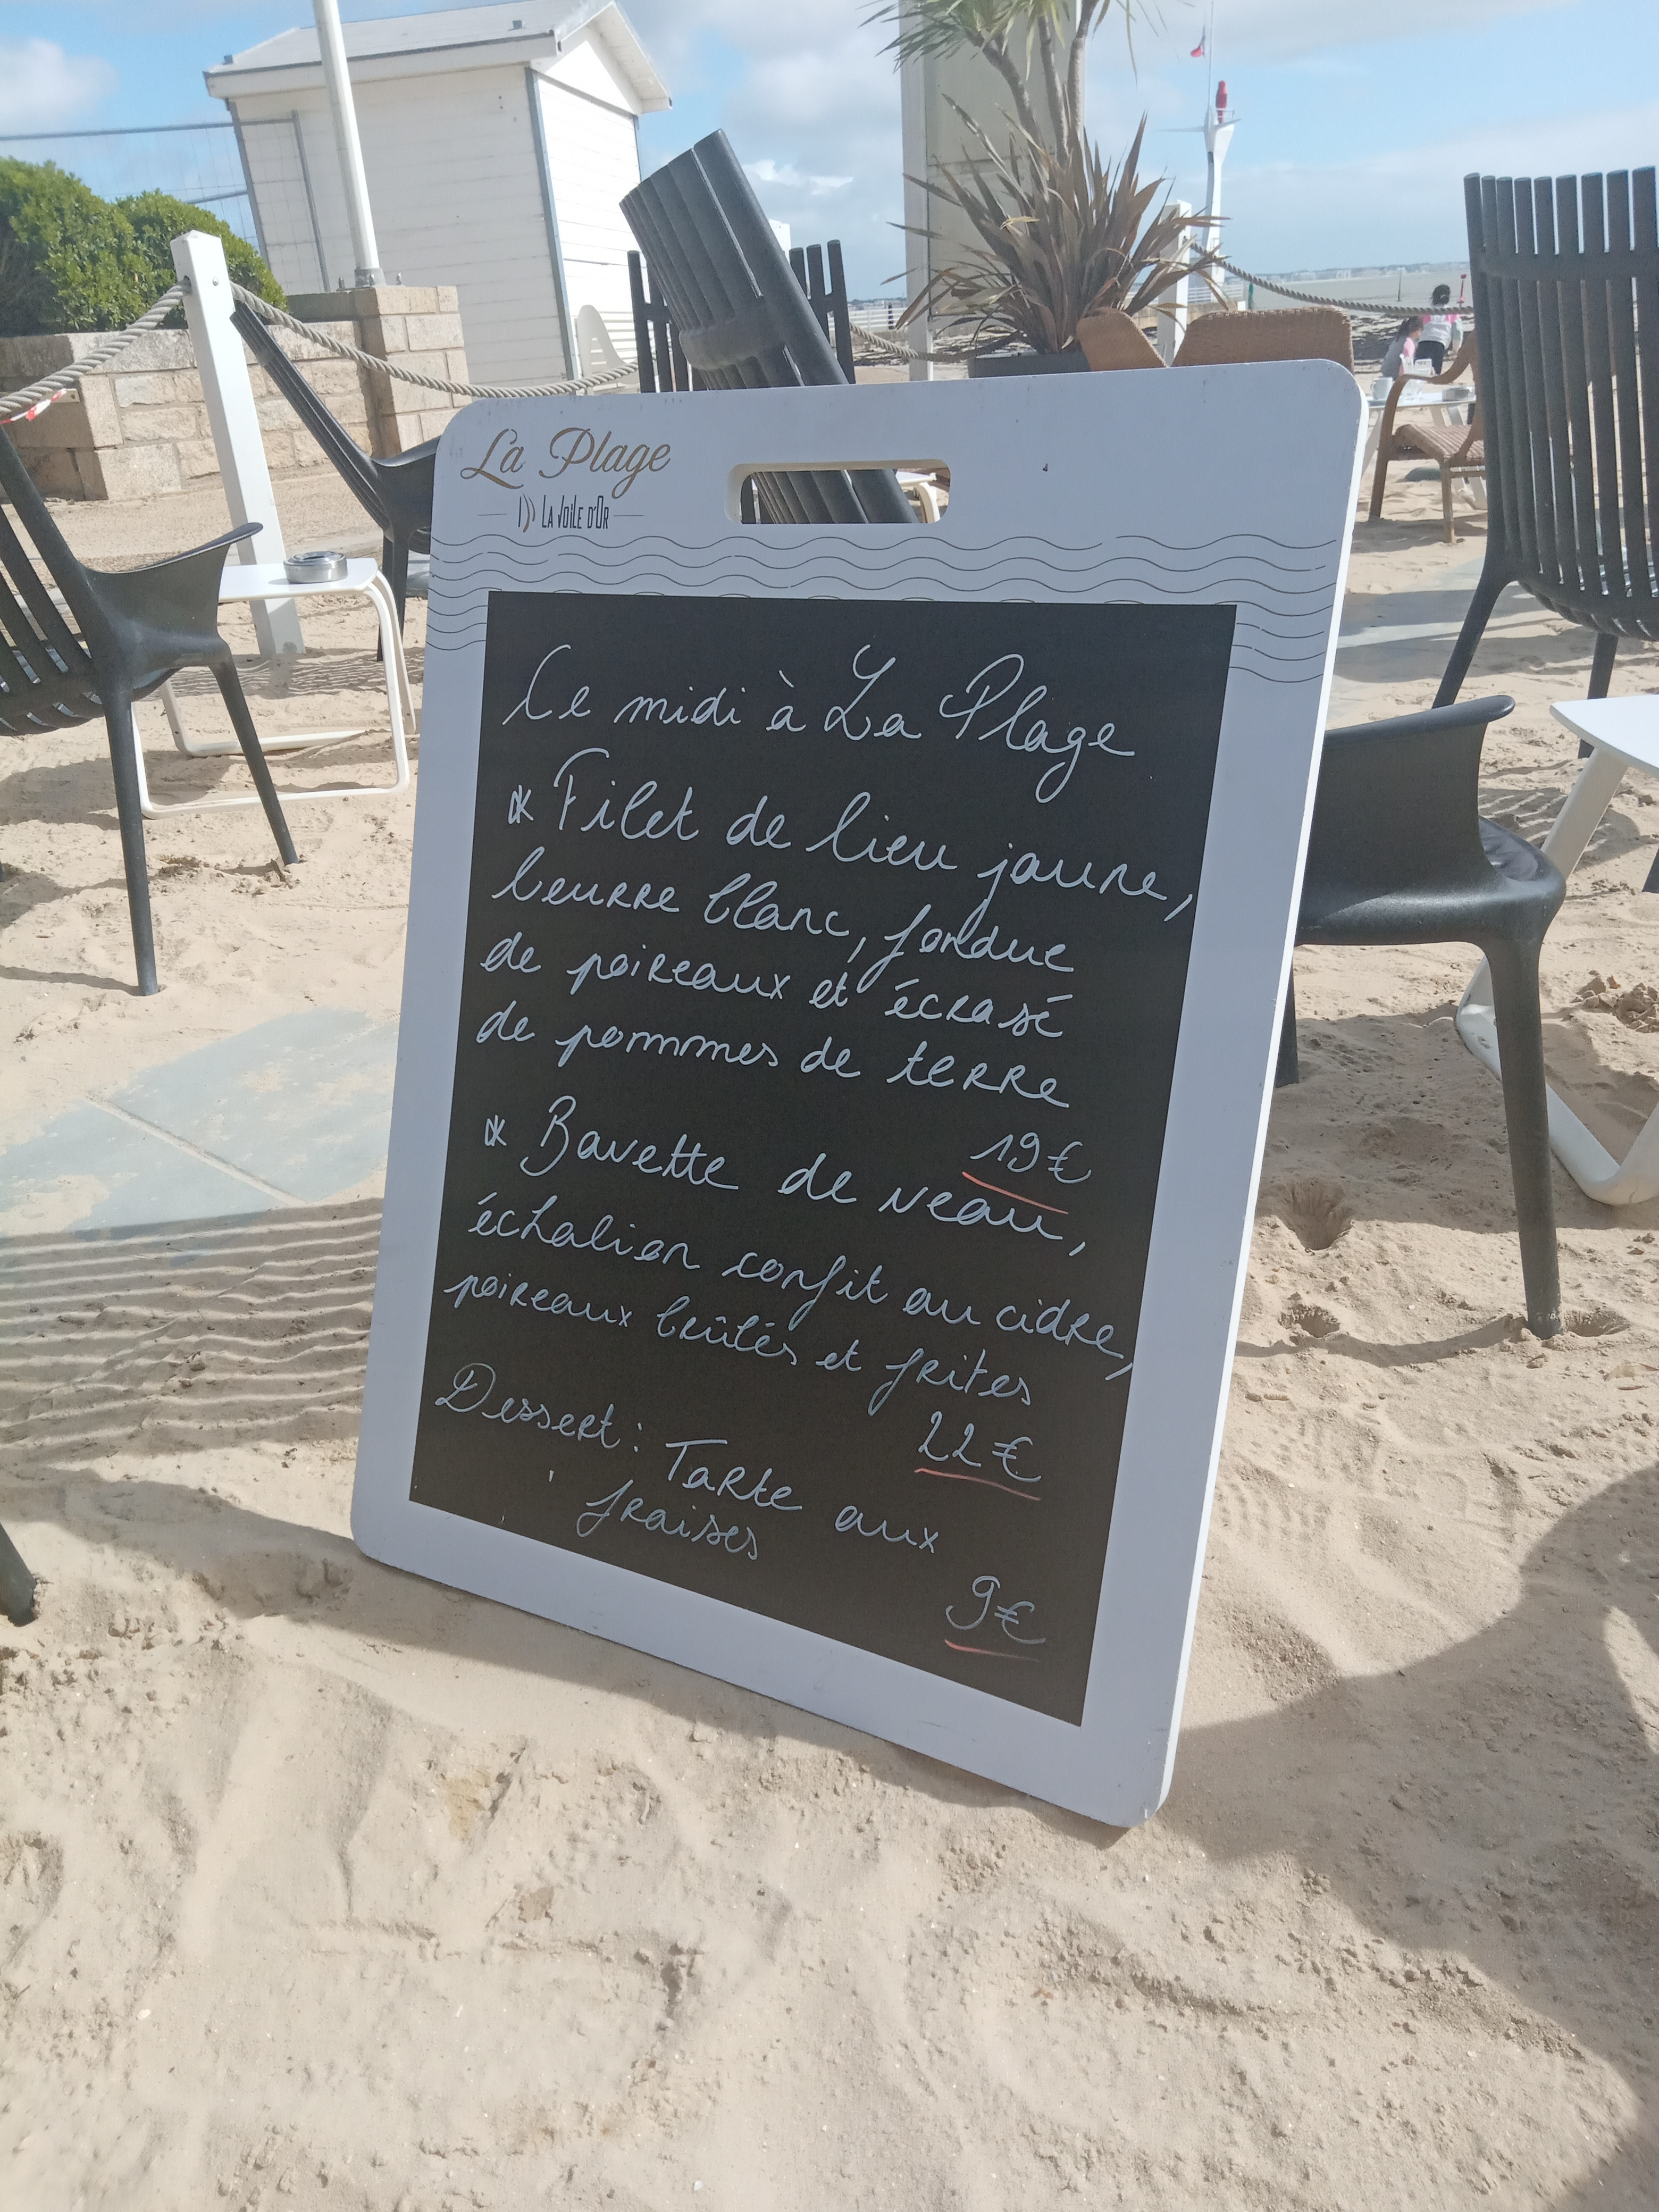 La Plage
LA VOILE D'OR
Ce midi à La Plage
* Filet de lieu jaune,
beurre blanc, fondue
de poireaux et écrasé
de pommes de terre
19€
* Bavette de veau,
échalion confit au cidre,
poireaux brûlés et frites
22€
Dessert : Tarte aux
fraises
9€